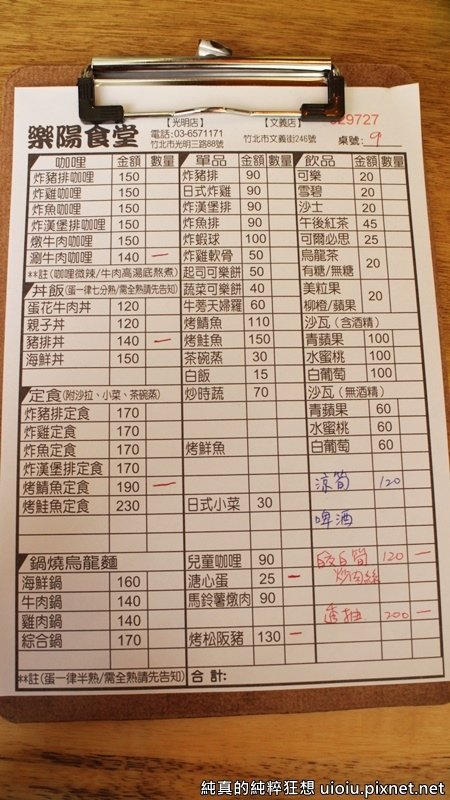 樂陽食堂
【光明店】
電話:03-6571171
竹北市光明三路88號
【文義店】
竹北市文義街246號
029727
桌號: 9
咖哩 金額 數量
炸豬排咖哩 150
炸雞咖哩 150
炸魚咖哩 150
炸漢堡排咖哩 150
燉牛肉咖哩 150
涮牛肉咖哩 140 一
**註(咖哩微辣/牛肉高湯底熬煮)
丼飯(蛋一律七分熟/需全熟請先告知)
蛋花牛肉丼 120
親子丼 120
豬排丼 140 一
海鮮丼 150
定食(附沙拉、小菜、茶碗蒸)
炸豬排定食 170
炸雞定食 170
炸魚定食 170
炸漢堡排定食 170
烤鯖魚定食 190 一
烤鮭魚定食 230
鍋燒烏龍麵
海鮮鍋 160
牛肉鍋 140
雞肉鍋 140
綜合鍋 170
**註(蛋一律半熟/需全熟請先告知)
單品 金額 數量
炸豬排 90
日式炸雞 90
炸漢堡排 90
炸魚排 90
炸蝦球 100
炸雞軟骨 50
起司可樂餅 50
蔬菜可樂餅 40
牛蒡天婦羅 60
烤鯖魚 110
烤鮭魚 150
茶碗蒸 30
白飯 15
炒時蔬 70
烤鮮魚
日式小菜 30
兒童咖哩 90
溏心蛋 25 一
馬鈴薯燉肉 90
烤松阪豬 130 一
合計:
飲品 金額 數量
可樂 20
雪碧 20
沙士 20
午後紅茶 45
可爾必思 25
烏龍茶
有糖/無糖 20
美粒果
柳橙/蘋果 20
沙瓦(含酒精)
青蘋果 100
水蜜桃 100
白葡萄 100
沙瓦(無酒精)
青蘋果 60
水蜜桃 60
白葡萄 60
涼筍 120
啤酒
筊白筍 120 一
炒肉絲
透抽 200 一
純真的純粹狂想 uioiu.pixnet.net